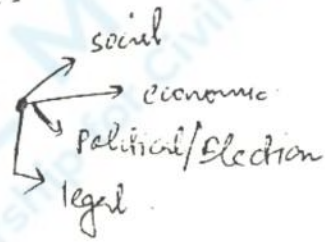 social
economic
Political/Election
legal